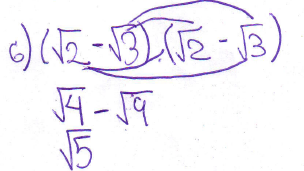 6) (√2 - √3) (√2 - √3)
√4 - √9
√5